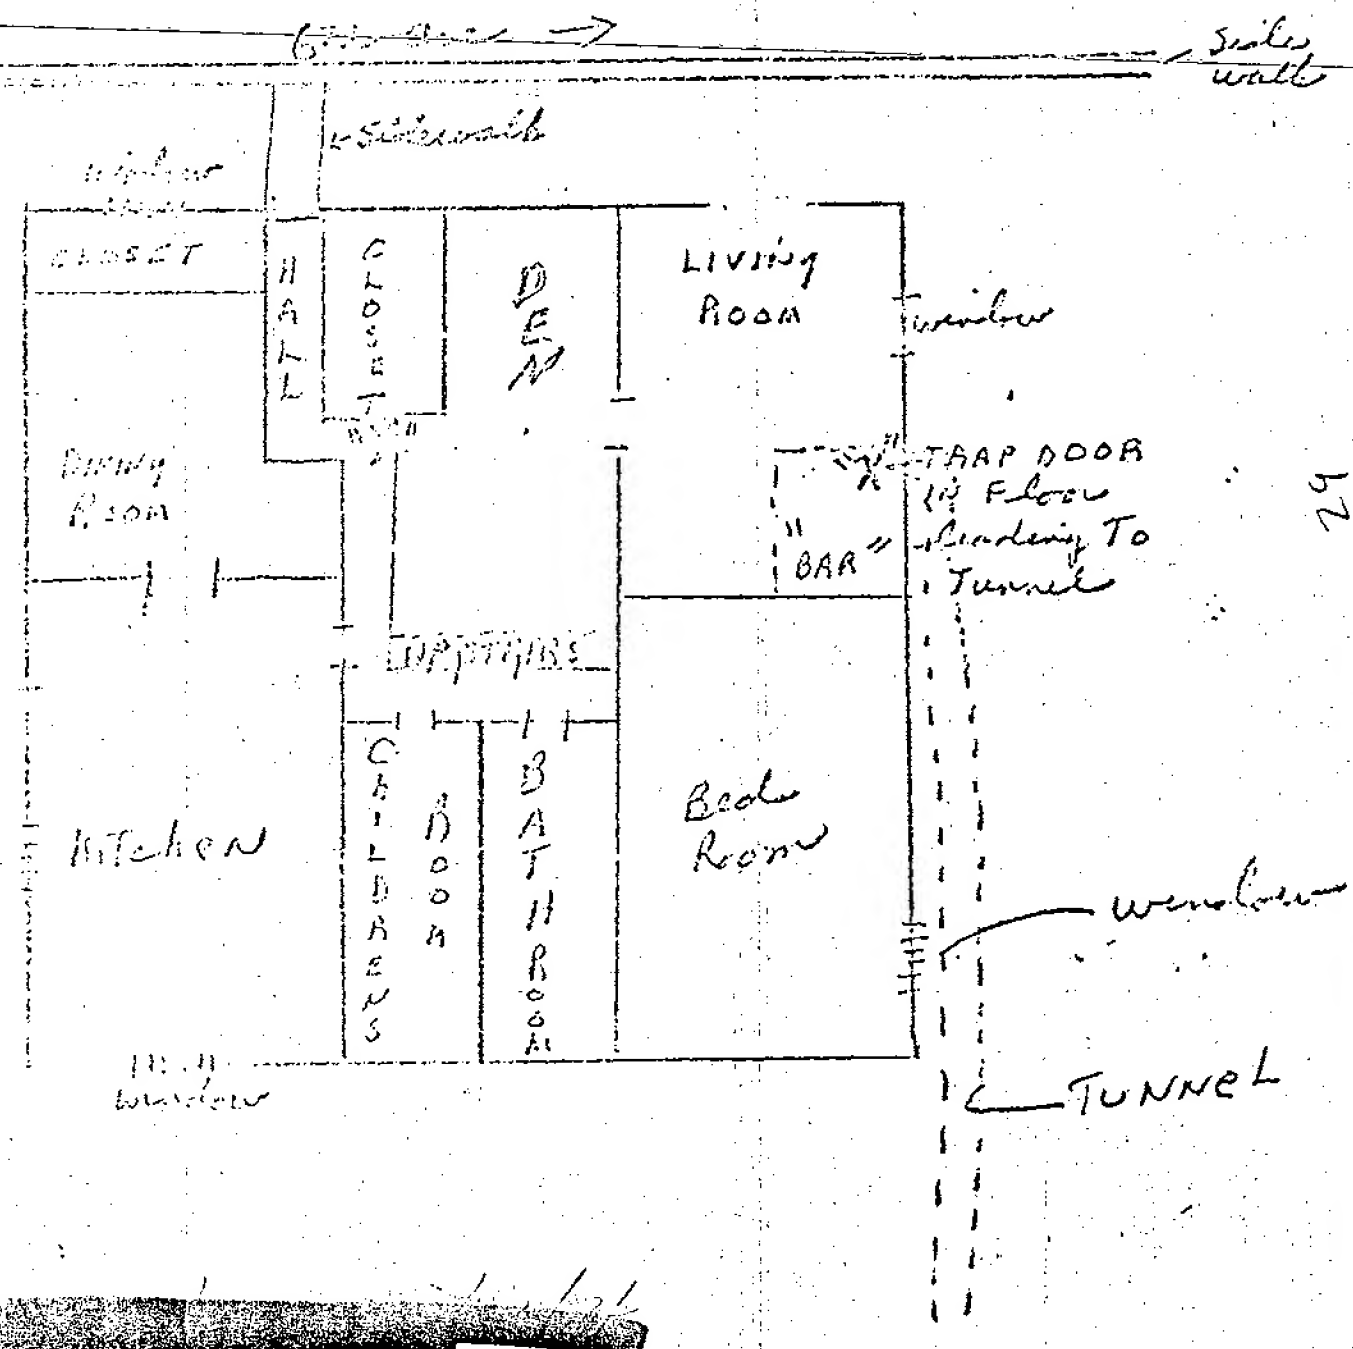 Side
walk
Sidewalk
window
CLOSET
HALL
CLOSET
DEN
LIVING
ROOM
window
DINING
ROOM
TRAP DOOR
IN Floor
Leading To
Tunnel
"BAR"
UPSTAIRS
KITCHEN
CHILDRENS
ROOM
BATHROOM
Bed
Room
window
window
TUNNEL